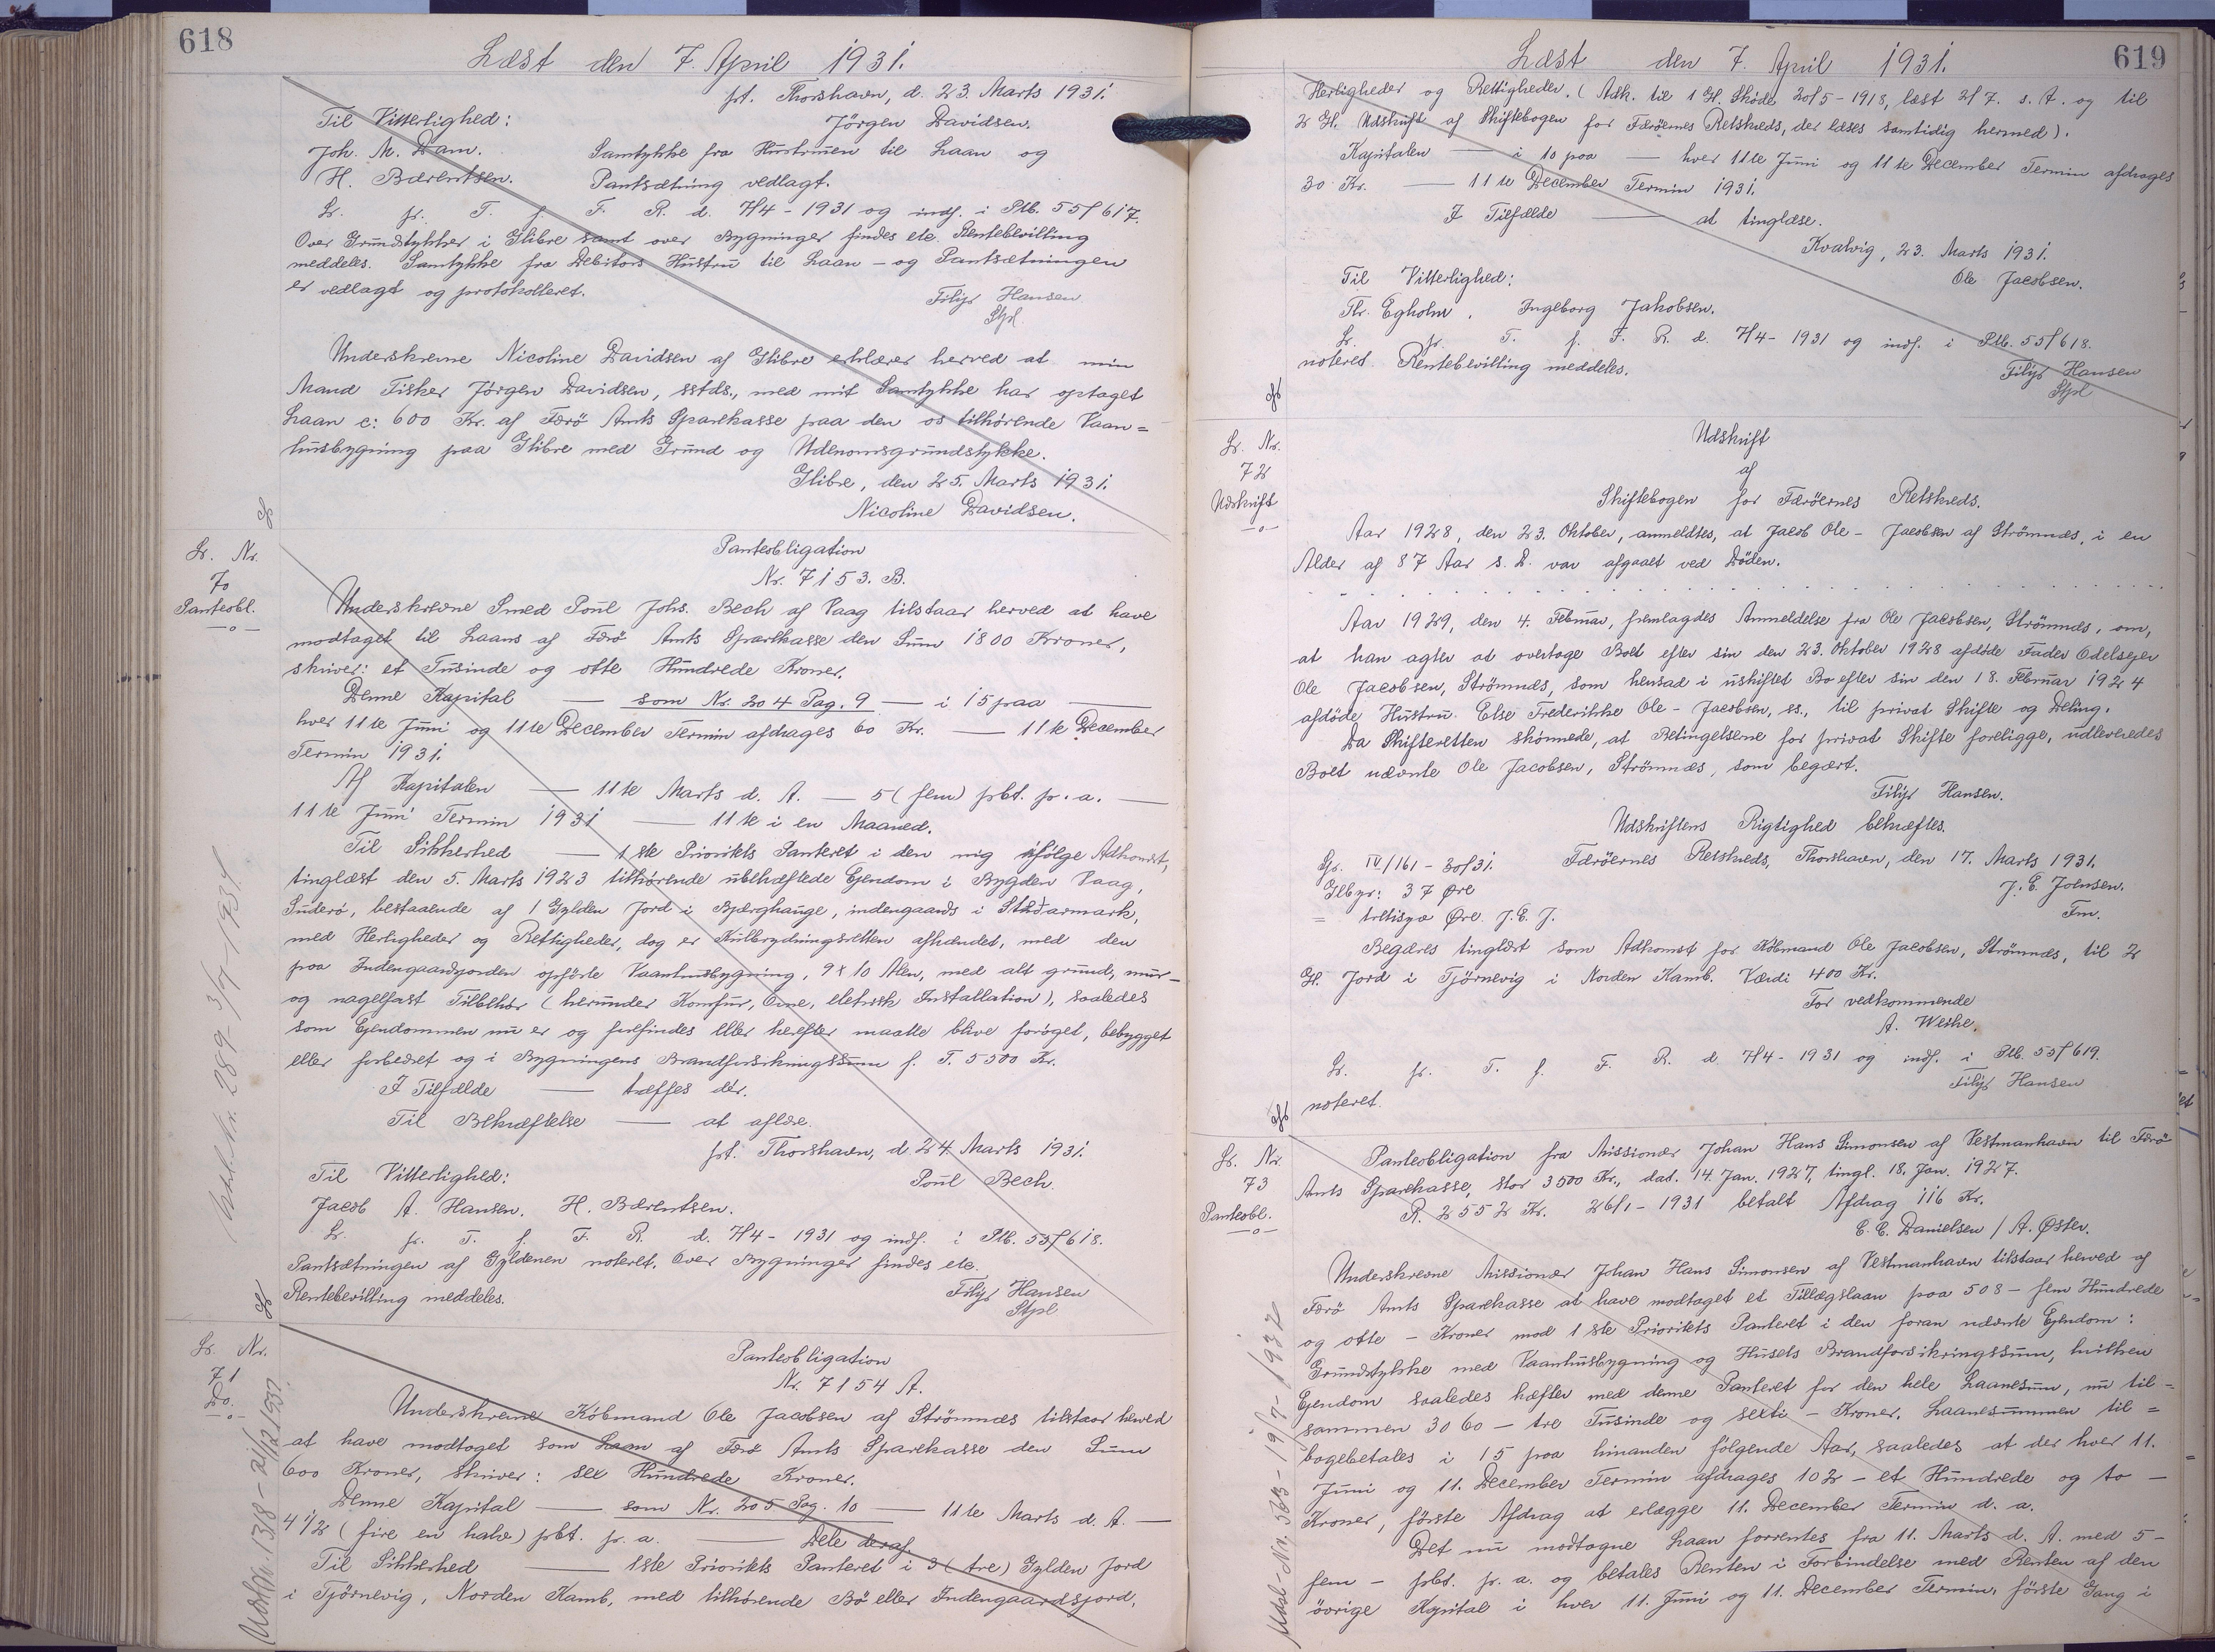 618
Læst den 7. April 1931.
pt. Thorshavn, d. 23. Marts 1931.
Til Vitterlighed:
Jörgen Davidsen.
Joh. M. Dam.
Samtykke fra Hustruen til Laan og
H. Bærentsen.
Pantsætning vedlagt.
Lr. pr. T. f. F. R. d. 7/4 - 1931 og indf. i Ptb. 55f617.
Over Grundstykker i Glibre samt over Bygninger findes ete. Rentebevilling
meddeles. Samtykke fra Debitors Hustru til Laan - og Pantsætningen
er vedlagt og protokolleret.
Filip Hansen
Stpl.
Underskrevne Nicoline Davidsen af Glibre erklærer herved at min
Mand Fisker Jörgen Davidsen, sstds., med mit Samtykke har optaget
Laan c: 600 Kr. af Færö Amts Sparekasse paa den os tilhörende Vaan=
husbygning paa Glibre med Grund og Udenomsgrundstykke.
Glibre, den 25. Marts 1931.
Nicoline Davidsen.
Lr. Nr.
70
Panteobl.
-o-
Panteobligation
Nr. 7153. B.
Underskrevne Smed Poul Johs. Bech af Vaag tilstaar herved at have
modtaget til Laans af Færö Amts Sparekasse den Sum 1800 Kroner,
skriver: et Tusinde og otte Hundrede Kroner.
Denne Kapital — som Nr. 204 Pag. 9 — i 15 paa —
hver 11te Juni og 11te December Termin afdrages 60 Kr. — 11te December
Termin 1931.
Af Kapitalen — 11te Marts d. A. — 5 (fem) pbt. p. a. —
11te Juni Termin 1931 — 11te i en Maaned.
Til Sikkerhed — 1ste Prioritets Panteret i den mig ifölge Adkomst,
tinglæst den 5. Marts 1923 tilhörende ubehæftede Ejendom i Bygden Vaag,
Suderö, bestaaende af 1 Gylden Jord i Bjærghauge, indengaards i Studarmark,
med Herligheder og Rettigheder, dog er Kulbrydningsretten afhændet, med den
paa Indengaardsjorden opförte Vaanhusbygning, 9 x 10 Alen, med alt grund, mur-
og nagelfast Tilbehör (herunder Komfur, Ovne, eletrisk Installation), saaledes
som Ejendommen nu er og forefindes eller herefter maatte blive foröget, bebygget
eller forbedret og i Bygningens Brandforsikringssum f. T. 5500 Kr.
I Tilfælde — træffes dér.
Til Bekræftelse — at aflæse.
pt. Thorshavn, d. 24. Marts 1931.
Til Vitterlighed:
Poul Bech.
Jacob A. Hansen. H. Bærentsen.
Lr. pr. T. f. F. R. d. 7/4 - 1931 og indf. i Ptb. 55f618.
Pantsætningen af Gyldenen noteret. Over Bygninger findes ete.
Rentebevilling meddeles.
Filip Hansen
Stpl.
Nr. 289 - 3/7 1934
Lr. Nr.
71
Do.
-o-
Panteobligation
Nr. 7154 A.
Underskrevne Köbmand Ole Jacobsen af Strömnæs tilstaar herved
at have modtaget som Laan af Færö Amts Sparekasse den Sum
600 Kroner, skriver: sex Hundrede Kroner.
Denne Kapital — som Nr. 205 Pag. 10 — 11te Marts d. A. —
4 1/2 (fire en halv) pbt. p. a. — Dele deraf.
Til Sikkerhed — 1ste Prioritets Panteret i 3 (tre) Gylden Jord
i Tjörnevig, Norden Kamb, med tilhörende Bö eller Indengaardsjord,
619
Læst den 7. April 1931.
Herligheder og Rettigheder. (Adk. til 1 Gl. Sköde 20/5 - 1918, læst 2/7. s. A. og til
2 Gl. Udskrift af Skiftebogen for Færöernes Retskreds, der læses samtidig hermed).
Kapitalen — i 10 paa — hver 11te Juni og 11te December Termin afdrages
30 Kr. — 11te December Termin 1931.
I Tilfælde — at tinglæse.
Kvalvig, 23. Marts 1931.
Til Vitterlighed:
Ole Jacobsen.
Thr. Egholm. Ingeborg Jakobsen.
Lr. pr. T. f. F. R. d. 7/4 - 1931 og indf. i Ptb. 55f618.
noteret. Rentebevilling meddeles.
Filip Hansen
Stpl
Lr. Nr.
72
Udskrift
-o-
Udskrift
af
Skiftebogen for Færöernes Retskreds.
Aar 1928, den 23. Oktober, anmeldtes, at Jacob Ole - Jacobsen af Strömnæs, i en
Alder af 87 Aar s. D. var afgaaet ved Döden.
Aar 1929, den 4. Februar, fremlagdes Anmeldelse fra Ole Jacobsen, Strömnæs, om,
at han agter at overtage Boet efter sin den 23. Oktober 1928 afdöde Fader Odelsejer
Ole Jacobsen, Strömnæs, som hensad i uskiftet Bo efter sin den 18. Februar 1924
afdöde Hustru. Else Frederikke Ole - Jacobsen, ss., til privat Skifte og Deling.
Da Skifteretten skönnede, at Betingelserne for privat Skifte foreligge, udleveredes
Boet nævnte Ole Jacobsen, Strömnæs, som begært.
Filip Hansen.
Udskriftens Rigtighed bekræftes.
Gr. IV/161 - 30/31. Færöernes Retskreds, Thorshavn, den 17. Marts 1931.
Glbyr: 37 Øre
J. E. Johnsen.
= tretisyv Øre. J. E. J.
Fm.
Begæres tinglæst som Adkomst for Köbmand Ole Jacobsen, Strömnæs, til 2
Gl. Jord i Tjörnevig i Norden Kamb. Værdi 400 Kr.
For vedkommende
A. Weihe.
Lr. pr. T. f. F. R. d. 7/4 - 1931 og indf. i Ptb. 55f619.
noteret.
Filip Hansen
Lr. Nr.
73
Panteobl.
-o-
Panteobligation fra Missionær Johan Hans Simonsen af Vestmanhavn til Færö
Amts Sparekasse, stor 3500 Kr., dat. 14. Jan. 1927, tingl. 18. Jan. 1927.
R. 2552 Kr. 26/1 - 1931 betalt Afdrag 116 Kr.
E. C. Danielsen / A. Øster.
Underskrevne Missionær Johan Hans Simonsen af Vestmanhavn tilstaar herved af
Færö Amts Sparekasse at have modtaget et Tillægslaan paa 508 - fem Hundrede
og otte - Kroner mod 1ste Prioritets Panteret i den foran nævnte Ejendom:
Grundstykke med Vaanhusbygning og Husets Brandforsikringssum, hvilken
Ejendom saaledes hæfter med denne Panteret for den hele Laanesum, nu til-
sammen 3060 - tre Tusinde og sexti - Kroner. Laanesummen til=
bagebetales i 15 paa hinanden fölgende Aar, saaledes at der hver 11.
Juni og 11. December Termin afdrages 102 - et Hundrede og to -
Kroner, förste Afdrag at erlægge 11. December Termin d. a.
Det nu modtagne Laan forrentes fra 11. Marts d. A. med 5 -
fem - pbt. p. a. og betales Renten i Forbindelse med Renten af den
övrige Kapital i hver 11. Juni og 11. December Termin, förste Gang i